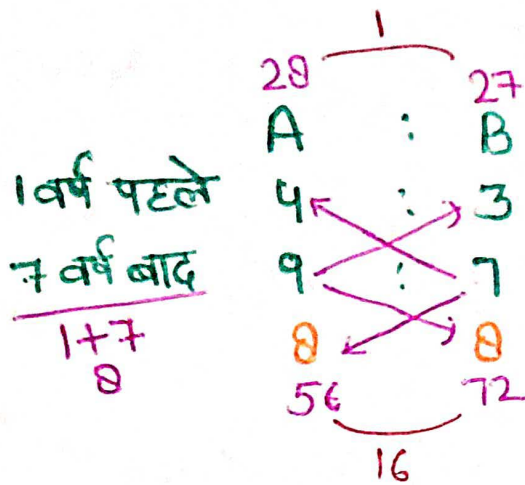 1
28 27
A : B
1 वर्ष पहले 4 : 3
7 वर्ष बाद 9 : 7
1+7 8 8
8 56 72
16